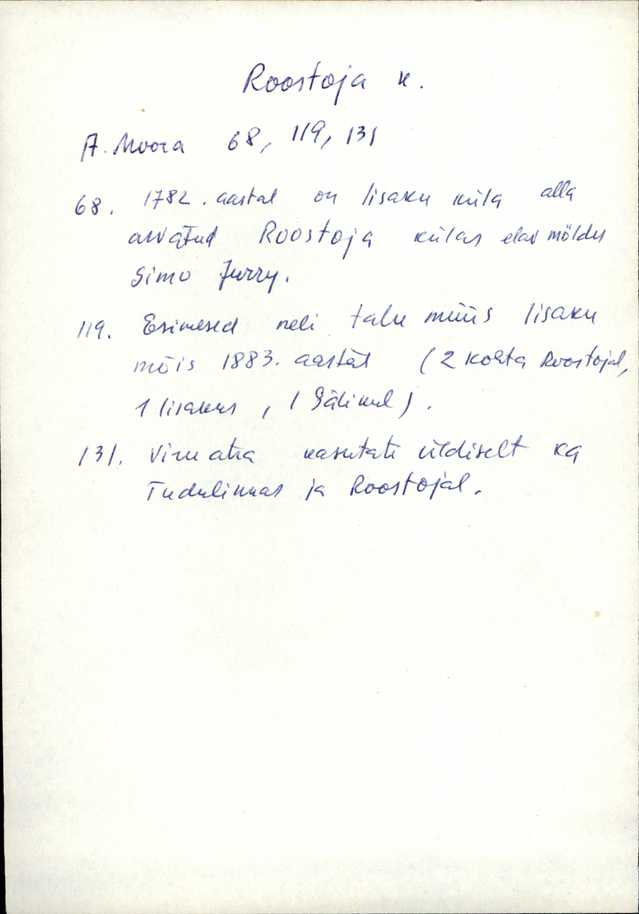 Roostoja k.
A. Moora 68, 119, 131
68. 1782. aastal on Iisaku küla alla
arvatud Roostoja külas elav mölder
Simo Jurry.
119. Esimesed neli talu müüs Iisaku
mõis 1883. aastal (2 kohta Roostojal,
1 Iisakus, 1 Sälikul).
131. Viru atra kasutati üldiselt ka
Tudulinnas ja Roostojal.